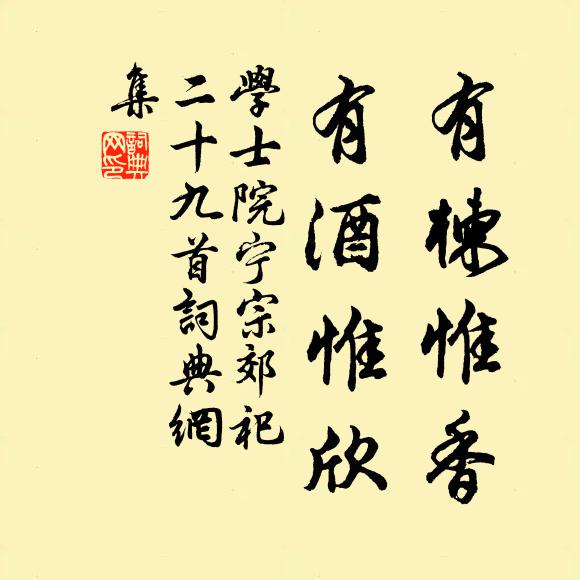 有楝惟香
有酒惟欣
學士院宁宗郊祀
二十九首詞典網
集
詞典網印